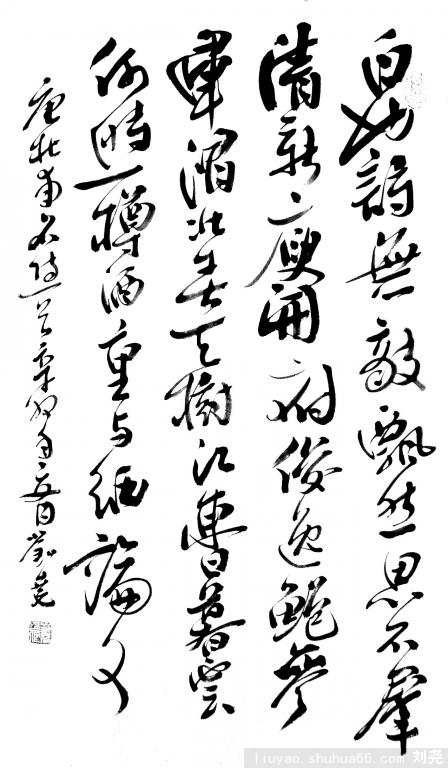 白也詩無敵飄然思不羣
清新庾開府俊逸鮑參
軍渭北春天樹江東日暮雲
何時一樽酒重与細論文
唐杜甫名诗一首辛卯年 月劉堯
liuyao.shuhua66.com 刘尧